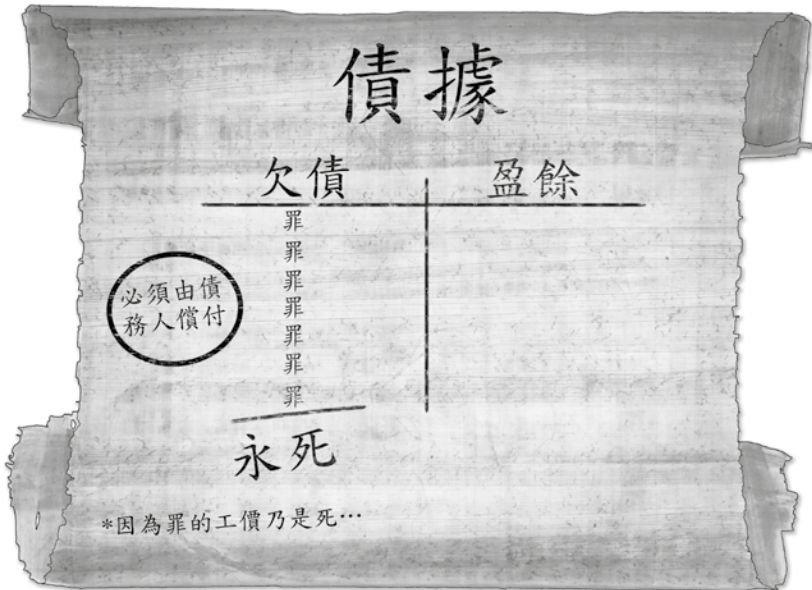 債據
欠債 盈餘
罪
罪
罪
罪
罪
罪
罪
必須由債
務人償付
永死
*因為罪的工價乃是死…